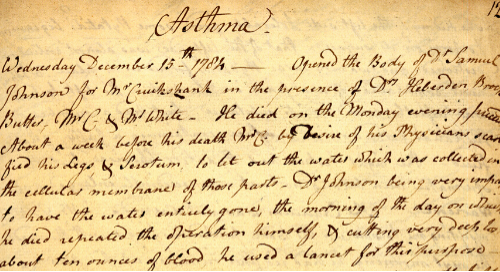 Asthma.
Wednesday December 15th 1784 — Opened the Body of Dr Samuel
Johnson for Mr Cruikshank in the presence of Drs Heberden
Butter, Mr C. & Mr White — He died on the Monday evening
About a week before his death Mr C. by desire of his Physicians scar
fied his Legs & Scrotum, to let out the water which was collected in
the cellular membrane of those parts — Dr Johnson being very impa
to have the water entirely gone, the morning of the day on which
he died repeated the operation himself, & cutting very deep lost
about ten ounces of blood he used a lancet for this purpose